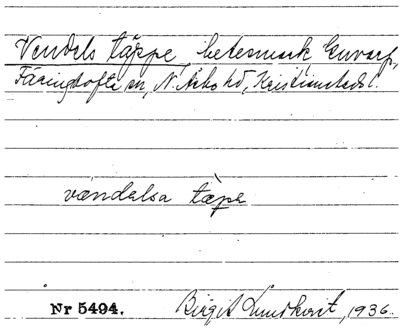 Vendels täppe, betesmark Envarp,
Färingtofta sn, N. Åsbo hd, Kristianstads l.
vændalsa tæpe
Nr 5494. Birgit Lundkvist, 1936.